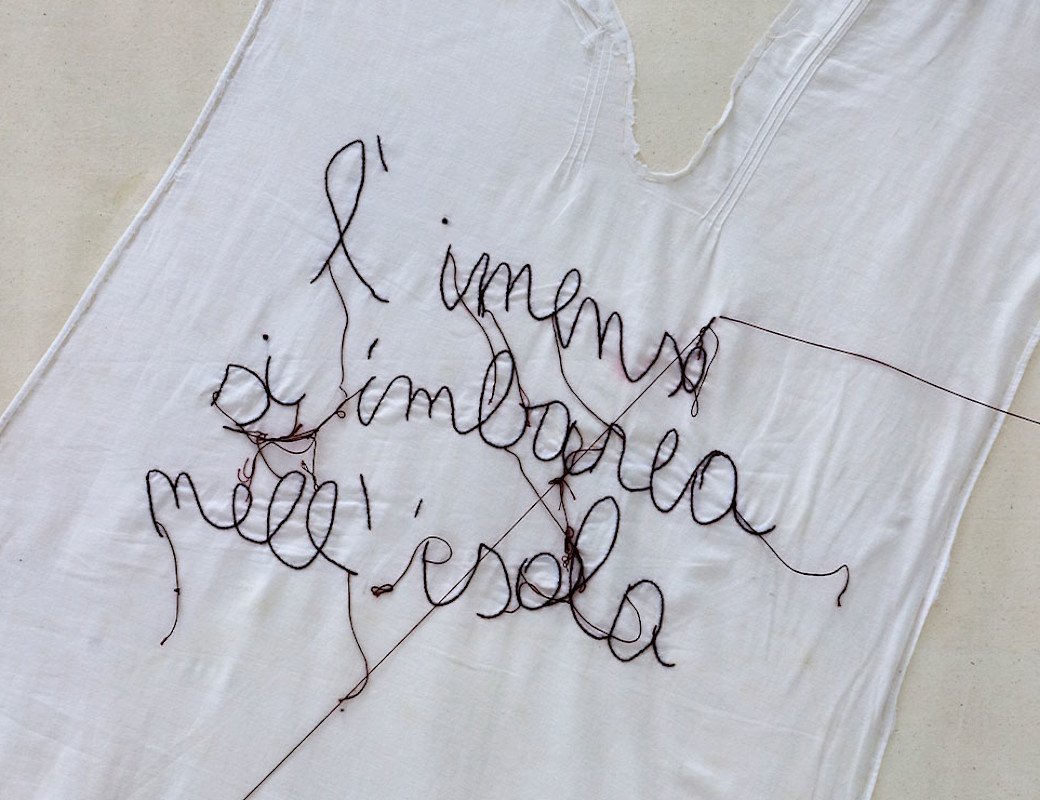 l' imenso
si imbarca
nell' isola